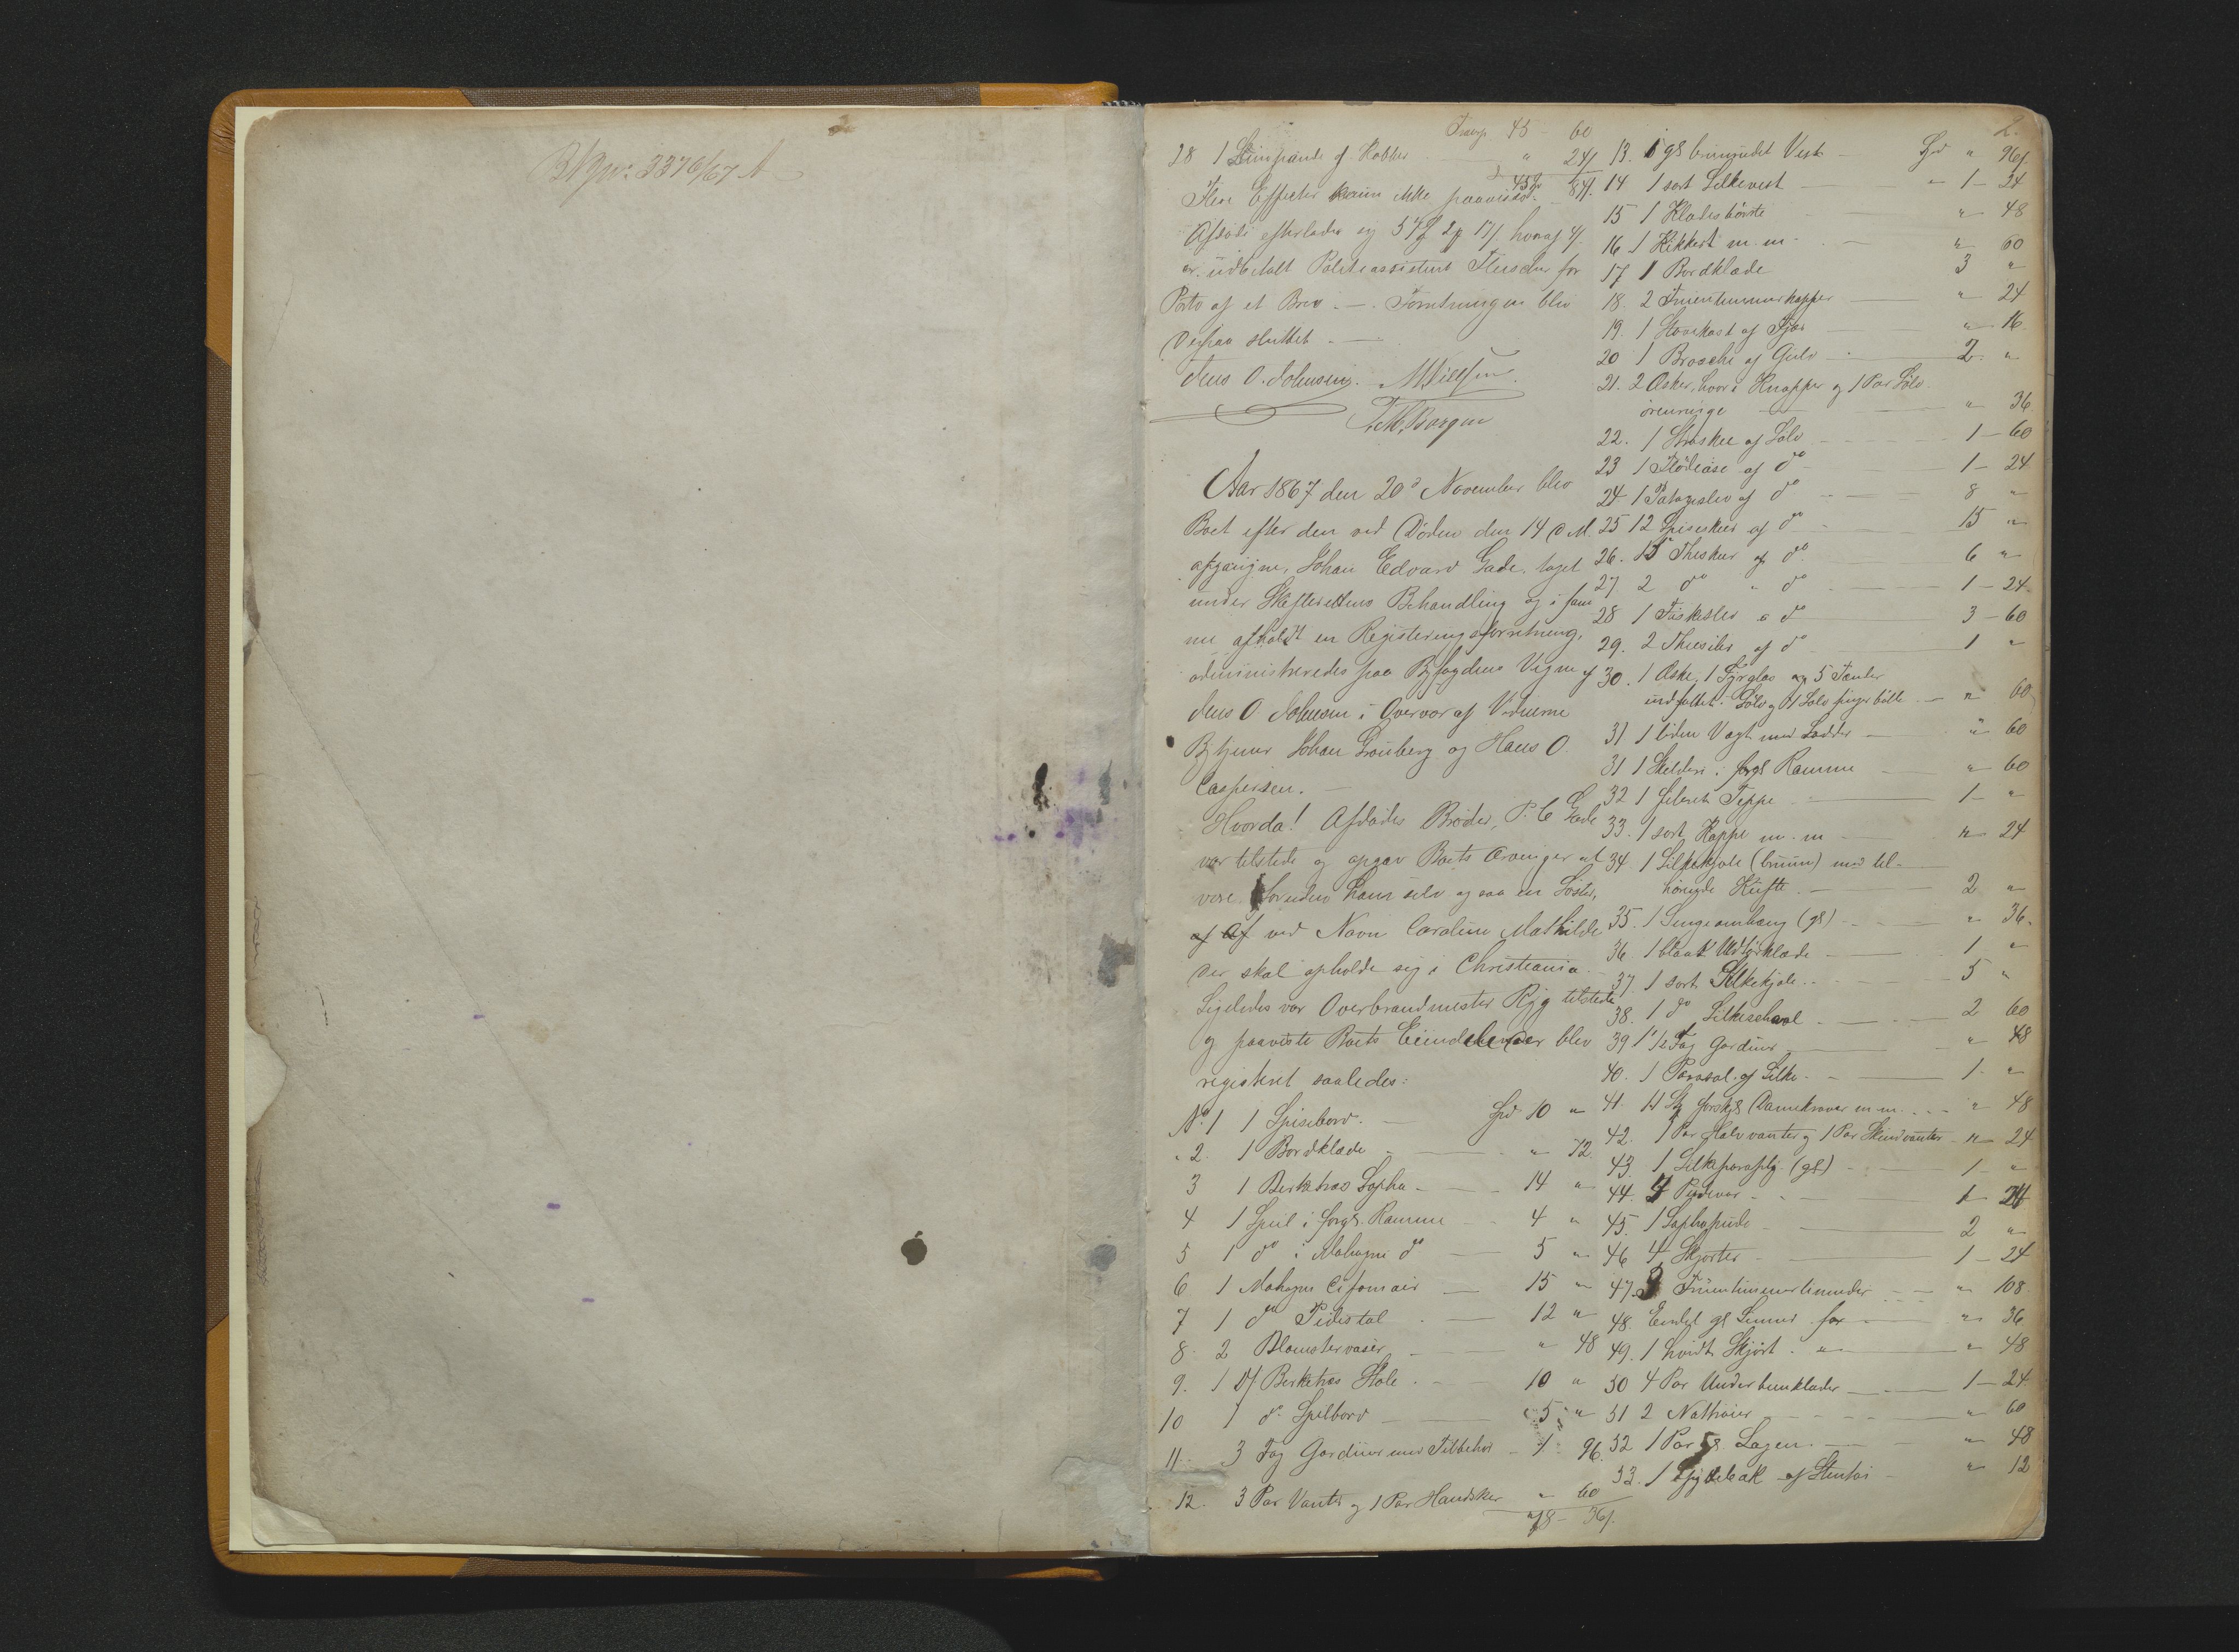 2
28 1 Limpande af Kobber " 24
Transp 45 - 60
45 84
Flere Effecter kunne ikke paavises.
Afdøde efterlader sig
er udbetalt Politieassistent for
Porto af et Brev. — Forretningen blev
derpaa sluttet. —
Jens O. Johnsen.
Aar 1867 den 20d November blev
Boet efter den ved Døden den 14 d M.
afgangne, Johan Edvard Gade, taget
under Skifterettens Behandling og i sam
me afholdt en Registreringsforretning,
administreredes paa Byfogdens Vegne af
Jens O Johnsen i Overvær af Vidnerne
Johan Grønberg og Hans O.
Caspersen. —
Hvorda! Afdødes Broder, P. C Gade
var tilstede og opgav Boets Arvinger at
være foruden ham selv ogsaa en Søster,
ved Navn Caroline Mathilde
der skal opholde sig i Christiania.
Ligeledes var Overbrandmester Ryg tilstede
og paaviste Boets Eiendele der blev
registeret saaledes:
No 1 1 Spisebord. — Spd 10 "
" 2. 1 Bordklæde " 72
3 1 Berketræs Sopha 14 "
4 1 Speil i forgt. Ramme 4 "
5 1 do i Mahogni do 5 "
6 1 Mahogni 15 "
7 1 do Pidestal 12 "
8. 2 Blomstervaser " 48
9. Berketræs Stole 10 "
10 1 do Spilbord 5 "
11. 3 Fag Gardiner med Tilbehør 1 96.
12. 3 Par Vanter og 1 Par Handsker " 60
78 - 36
2.
13. 1 gl Vest — Spd " 96
14 1 sort Silkevest " 1 - 24
15 1 Klædesbørste " 48
16 1 Kikkert m. m. " 60
17 1 Bordklæde 3 "
18. 2 Fruentimmerkapper " 24
19. 1 af Fjær " 16
20 1 Brosche af Guld 2. "
21. 2 Æsker, hvori Knapper og 1 Par Sølv
ørenringe " 36
22. 1 Strøskee af Sølv 1 - 60
23 1 Flødeøse af do 1 - 24
24 1 Potageslev af do 8 "
25 12 Spiseskeer af do 15 "
26. 15 Theskeer af do 6 "
27 2 do " do 1 - 24
28 1 Fiskeslev a do 3 - 60
29. 2 Thesiler af do 1 "
30. 1 Æske, 1 og 5 Tænder
indfattet i Sølv og 1 Sølv fingerbølle " 60
31 1 liden Vægt med Lodder " 60
31 1 Skilderi i forgt Ramme " 60
32 1 Teppe 1 - "
33. 1 sort Kappe m. m " 24
34 1 Silkekjole (bruun) med til-
hørende Kufte. 2 "
35. 1 Sengeomhæng (gl) " 36.
36 1 blaat Uldtørklæde 1 "
37. 1 sort Silkekjole 5 "
38. 1 do Silkeschavl 2 60
39 1 1/2 Fag Gardiner " 48
40. 1 Parasol af Silke 1. "
41. 14 Stk forskjl Damekraver m.m. " 48
42. 1 Par Halvvanter og 1 Par Skindvanter " 24
43. 1 Silkeparaply (gl) 1 "
44. 4 Pudevar 1 24
45. 1 Sophapude 2 "
46 4 Skjorter 1 - 24
47. " 108
48. Endel gl Linned for " 36
49. 1 hvidt Skjørt. " 48
50 4 Par Underbenklæder 1 - 24
51 2 Nattrøier " 60
52 1 Par gl. Lagen. " 48
53. 1 af Stentøi " 12